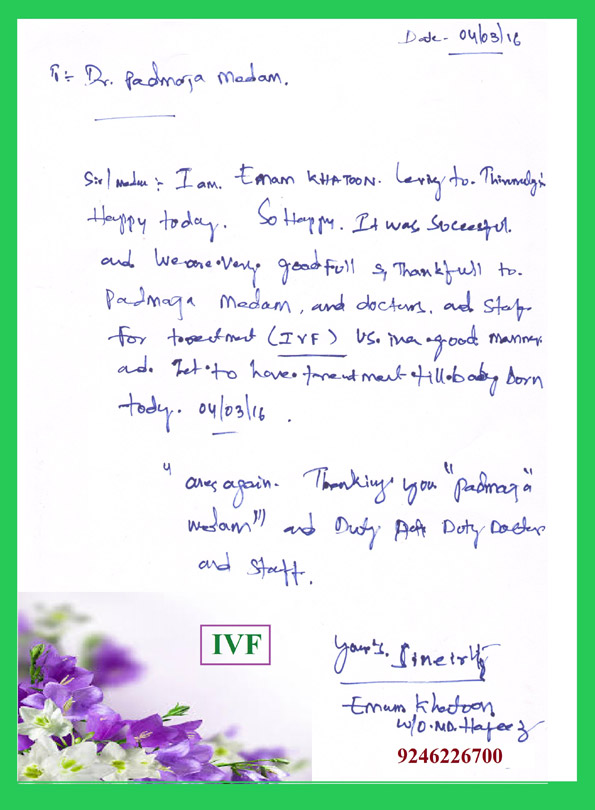 Date- 04/03/16
To:- Dr. Padmaja Madam.
Sir/madam:- I am. Emam KHATOON. to.
Happy today. So Happy. It was Soccessful.
and We are Very goodfull & Thankfull to.
Padmaja Madam, and doctors. ad staf
for treetment (IVF) us. in a good manner
ad. to have treentment till baby born
tody. 04/03/16.
" again. Thanking you "Padmaja"
medam"" and Duty Doty Doctor
and staff.
Your's. Sincirly
Emam Khatoon
W/O. MD. Hafeez
IVF
9246226700